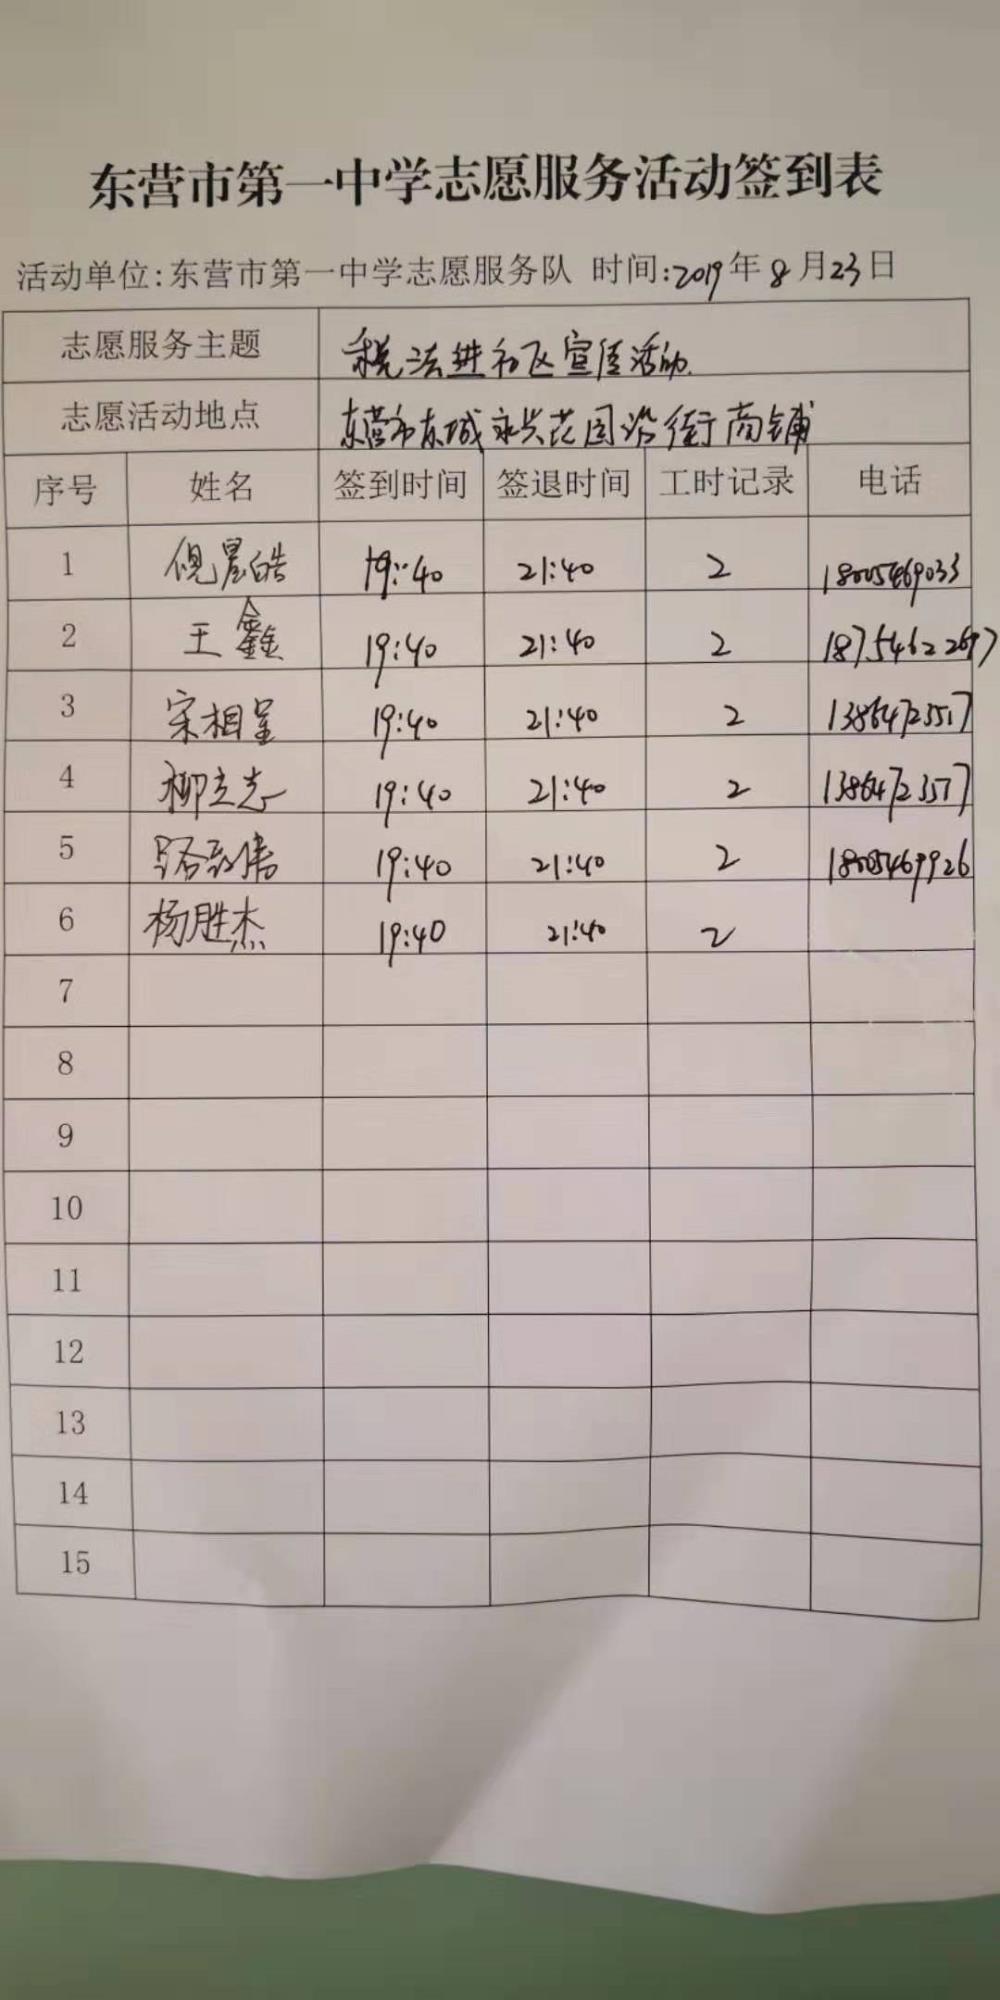 东营市第一中学志愿服务活动签到表
活动单位:东营市第一中学志愿服务队 时间:2019年8月23日
志愿服务主题 税法进社区宣传活动.
志愿活动地点 东营市东城永兴花园沿街商铺
序号 姓名 签到时间 签退时间 工时记录 电话
1 倪晨皓 19:40 21:40 2 18005469033
2 王鑫 19:40 21:40 2 18754622697
3 宋相呈 19:40 21:40 2 13864723517
4 柳立志 19:40 21:40 2 13864723577
5 19:40 21:40 2 18005469926
6 杨胜杰 19:40 21:40 2
7
8
9
10
11
12
13
14
15